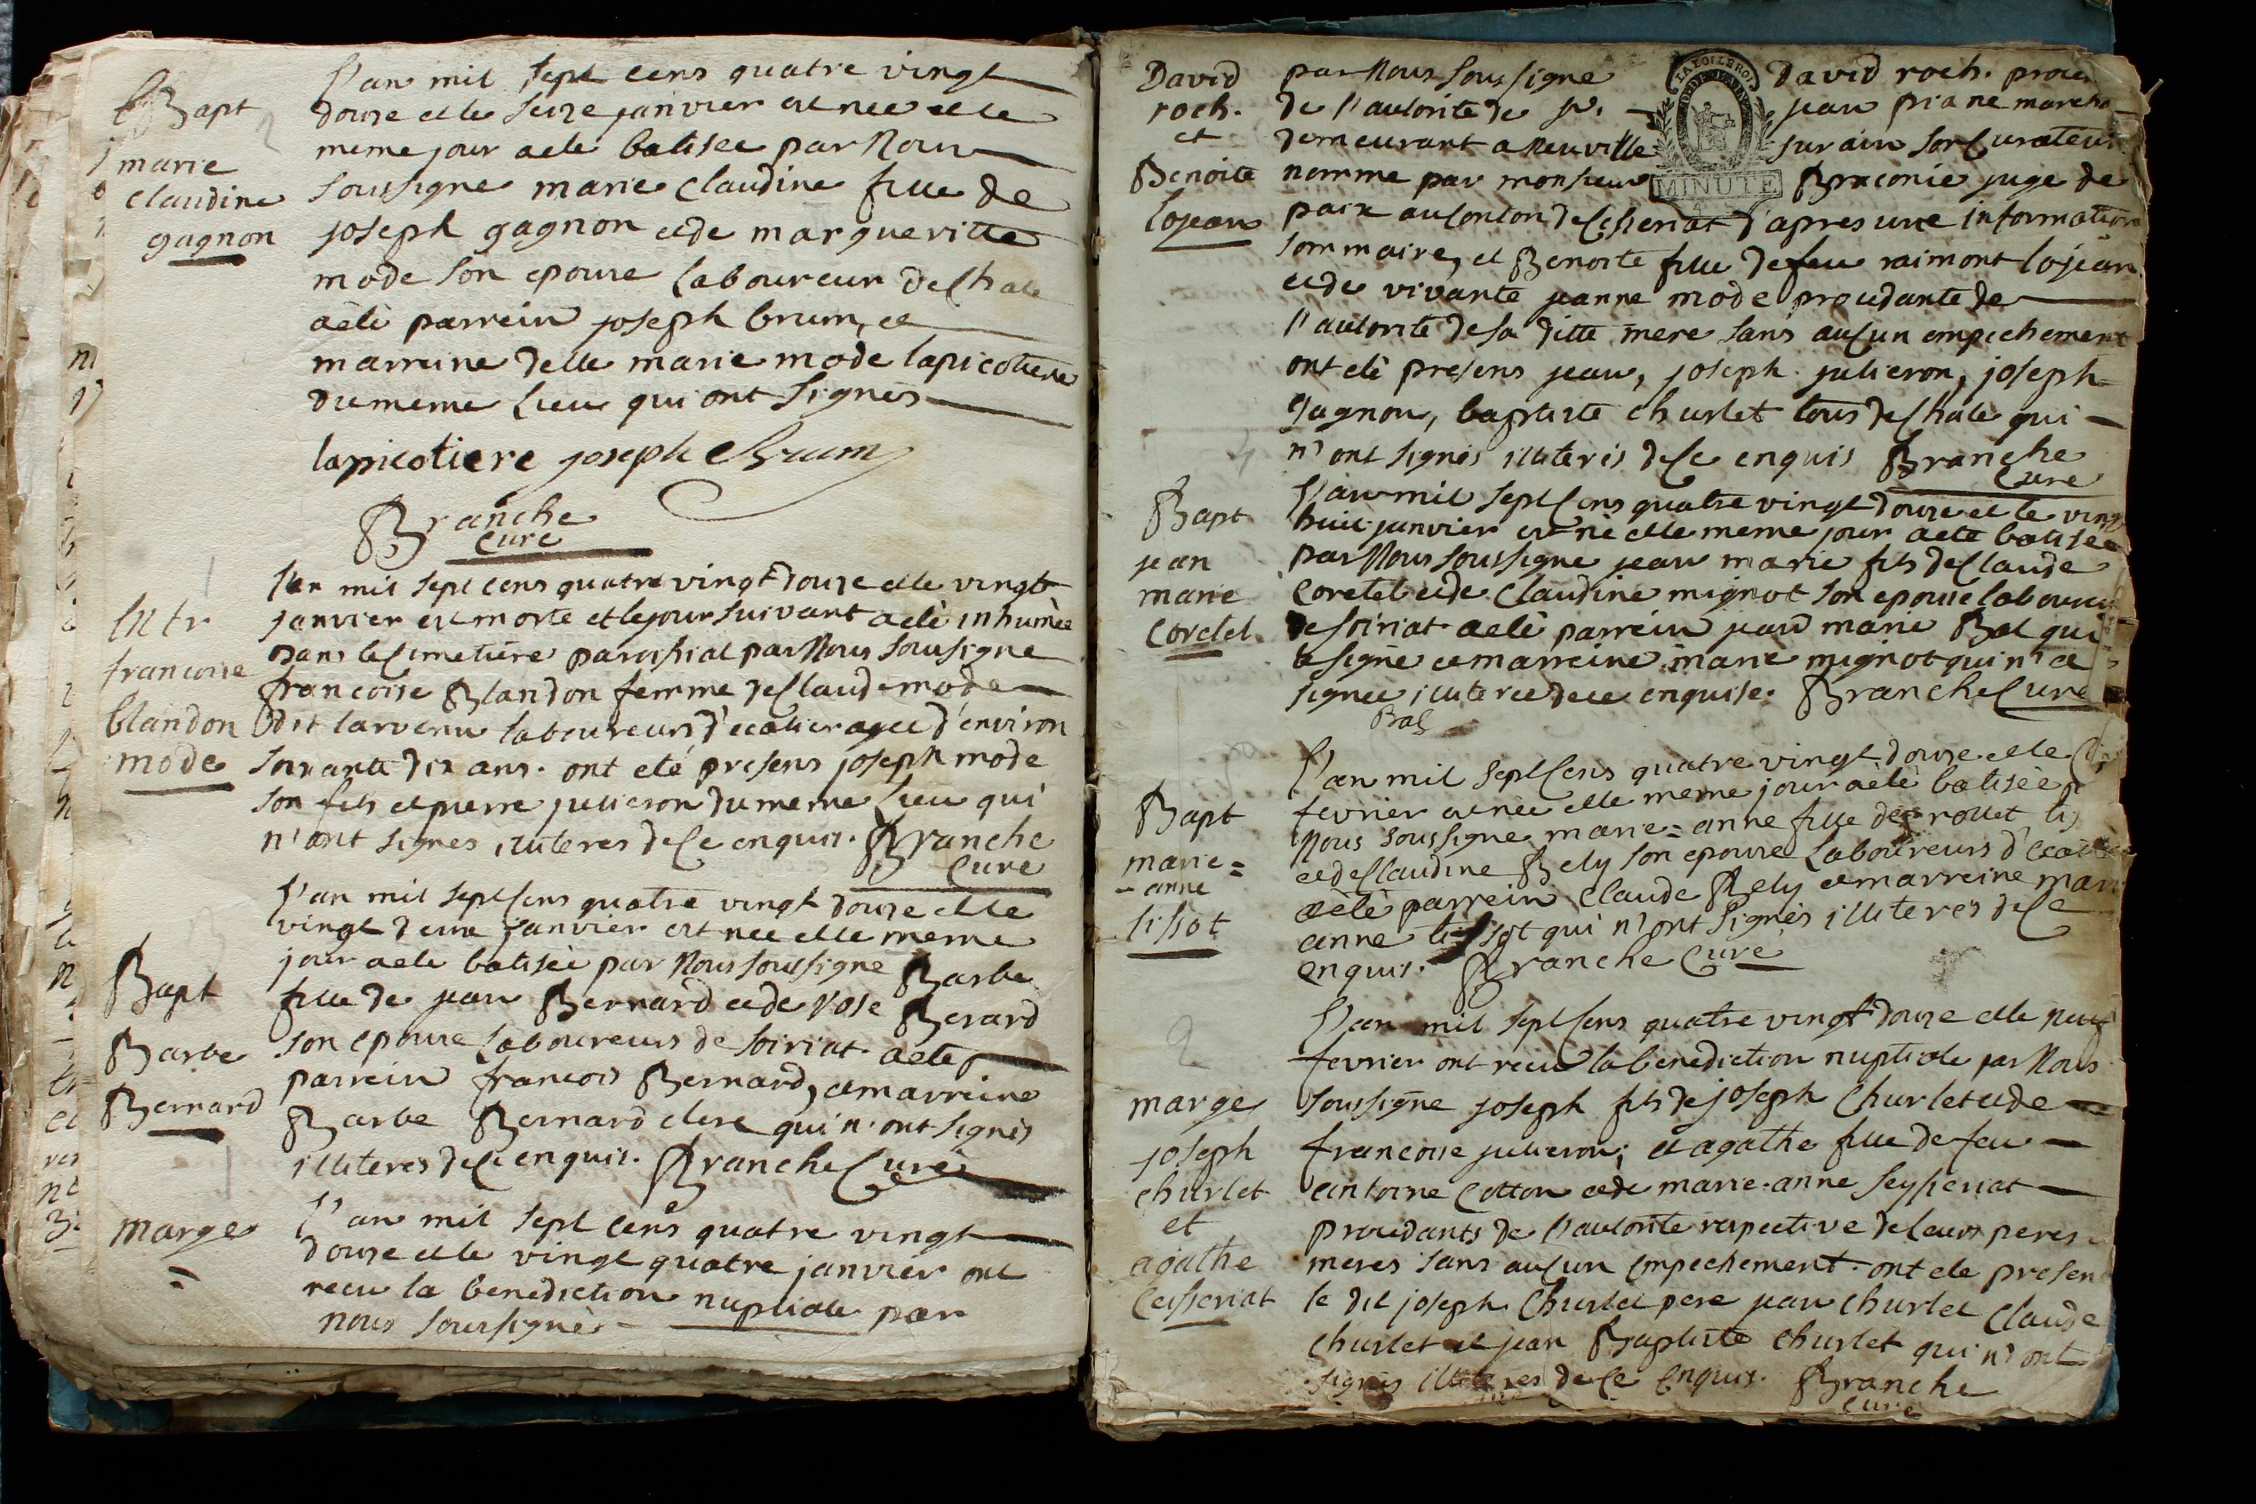 Bapt
marie
claudine
gagnon
L'an mil sept cens quatre vingt
douse et le seize janvier est née et le
meme jour a eté batisee par Nous
soussigne marie claudine fille de
joseph gagnon et de margueritte
mode son epouse laboureur de Chale
a eté parrein joseph brum, et
marreine delle marie mode lapicotiere
du meme lieu qui ont signes
lapicotiere joseph Brum
Branche
curé
Intr
francoise
blandon
mode
L'an mil sept cens quatre vingt douze et le vingt
janvier est morte et le jour suivant a eté inhumèe
dans le cimetiere paroissial par Nous soussigne
francoise Blandon femme de Claude mode
dit larvenu laboureurs d'ecatier agee d'environ
soixante dix ans. ont eté presens joseph mode
son fils et pierre julieron du meme lieu qui
n'ont signes illiteres de Ce enquis. Branche
Curé
Bapt
Barbe
Bernard
L'an mil sept Cens quatre vingt douze et le
vingt deux janvier est nee et le meme
jour a eté batisèe par Nous soussigne Barbe
fille de jean Bernard et de rose Berard
son epouse Laboureurs de soiriat a eté
parrein francois Bernard, et marreine
Barbe Bernard clere qui n'ont signès
illiteres de Ce enquis. Branche Curé
marge
=
L'an mil sept cens quatre vingt
douse et le vingt quatre janvier ont
recu la benediction nuptiale par
nous soussignè
David
roch.
et
Benoite
lojean
par Nous soussigne David roch.
de l'autorite de sr. jean piane
demeurant a neuville sur ain son Curateur
nomme par monsieur Braconie juge de
paix au Conton de Ceseriat d'apres une information
sommaire, et Benoite fille de feu raimont lojean
et de vivante jeanne mode procedante de
l'autorite de sa ditte mere sans auCun empechement
ont etè presens jean, joseph julieron, joseph
gagnon, baptiste churlet tous de Chale qui
n'ont signés illiteris de Ce enquis Branche
Curé
LA LOI LE ROI
MINUTE
Bapt
jean
marie
Cordel
L'an mil sept Cens quatre vingt douze et le vingt
huit janvier est né et le meme jour a eté batisee
par Nous soussigne jean marie fils de Claude
Coretel et de Claudine mignot son epouse
de soiriat a etè parrein jean marie Bal qui
a signe et marreine marie mignot qui n'a
signee illiteree de ce enquise. Branche Curé
Bal
Bapt
marie=
-anne
tissot
L'an mil sept Cens quatre vingt douze et le
fevrier est née et le meme jour a etè batisèe
Nous soussigne marie=anne fille de rollet
et de Claudine Bely son epouse Laboureurs
a etè parrein Claude Bely et marreine
anne tissot qui n'ont signès illiteres de Ce
enquis. Branche Curé
marge
joseph
churlet
et
agathe
Ceisseriat
L'an mil sept Cens quatre vingt douze et le neuf
fevrier ont recu la benediction nuptiale par Nous
soussigne joseph fils de joseph Churlet et de
francoise julieron; et agathe fille de feu
antoine Cotton et de marie-anne seysseriat
procedants de l'autorite respective de leurs peres
meres sans auCun empechement. ont ete presens
le dit joseph Churlet pere jean churlet Claude
churlet et jean Baptiste churlet qui n'ont
signés illiteres de Ce enquis. Branche
Curé